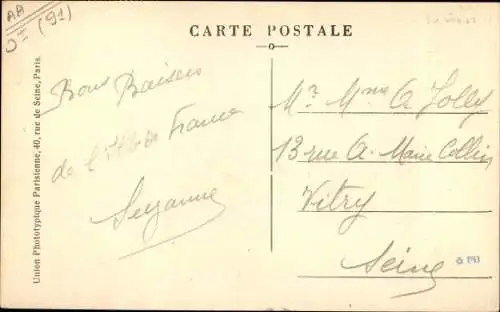 AA
(91)
CARTE POSTALE
Union Phototypique Parisienne, 40, rue de Seine, Paris.
Bons Baisers
de l' France
Suzanne
Mr Mme A Jolly
13 rue A. Marie Collin
Vitry
Seine